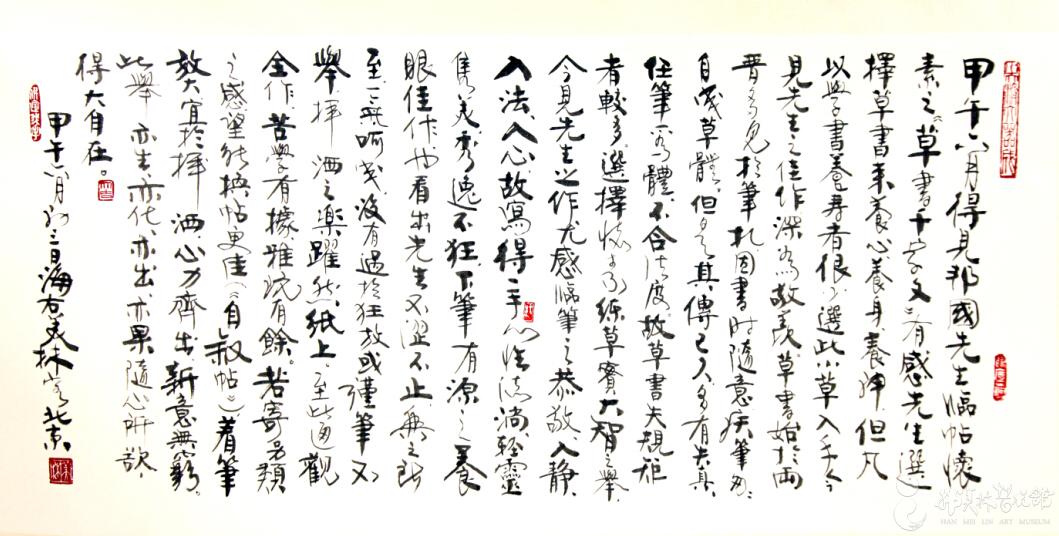 甲午六月得見邢國先生臨帖懷
素之《草書千字文》有感先生選
擇草書来養心養身養神但凡
以學書養壽者很少選此小草入手今
見先生之佳作深為敬羡草書始於两
晋多見於筆札因書时隨意疾筆
自成草體但是其傳已久多有失真
任筆為體不合法度故草書失規矩
者較多選擇懷素練草實大智之舉
今見先生之作尤感臨筆之恭敬入静
入法入心故寫得一手心性流淌輕靈
隽美秀逸不狂下筆有源之養
眼佳作也看出先生不澀不止
至三無呵成没有過於狂放或謹筆不
舉揮洒之樂躍然纸上至此通觀
全作苦學有據雅玩有餘若寄另類
之感望能换帖更佳《自叙帖》着筆
放大宜於揮洒心力齊出新意無窮
此舉亦生亦化亦出亦果隨心所欲
得大自在。
甲午六月初三日海右美林客北京
韩美林艺术馆
HAN MEI LIN ART MUSEUM